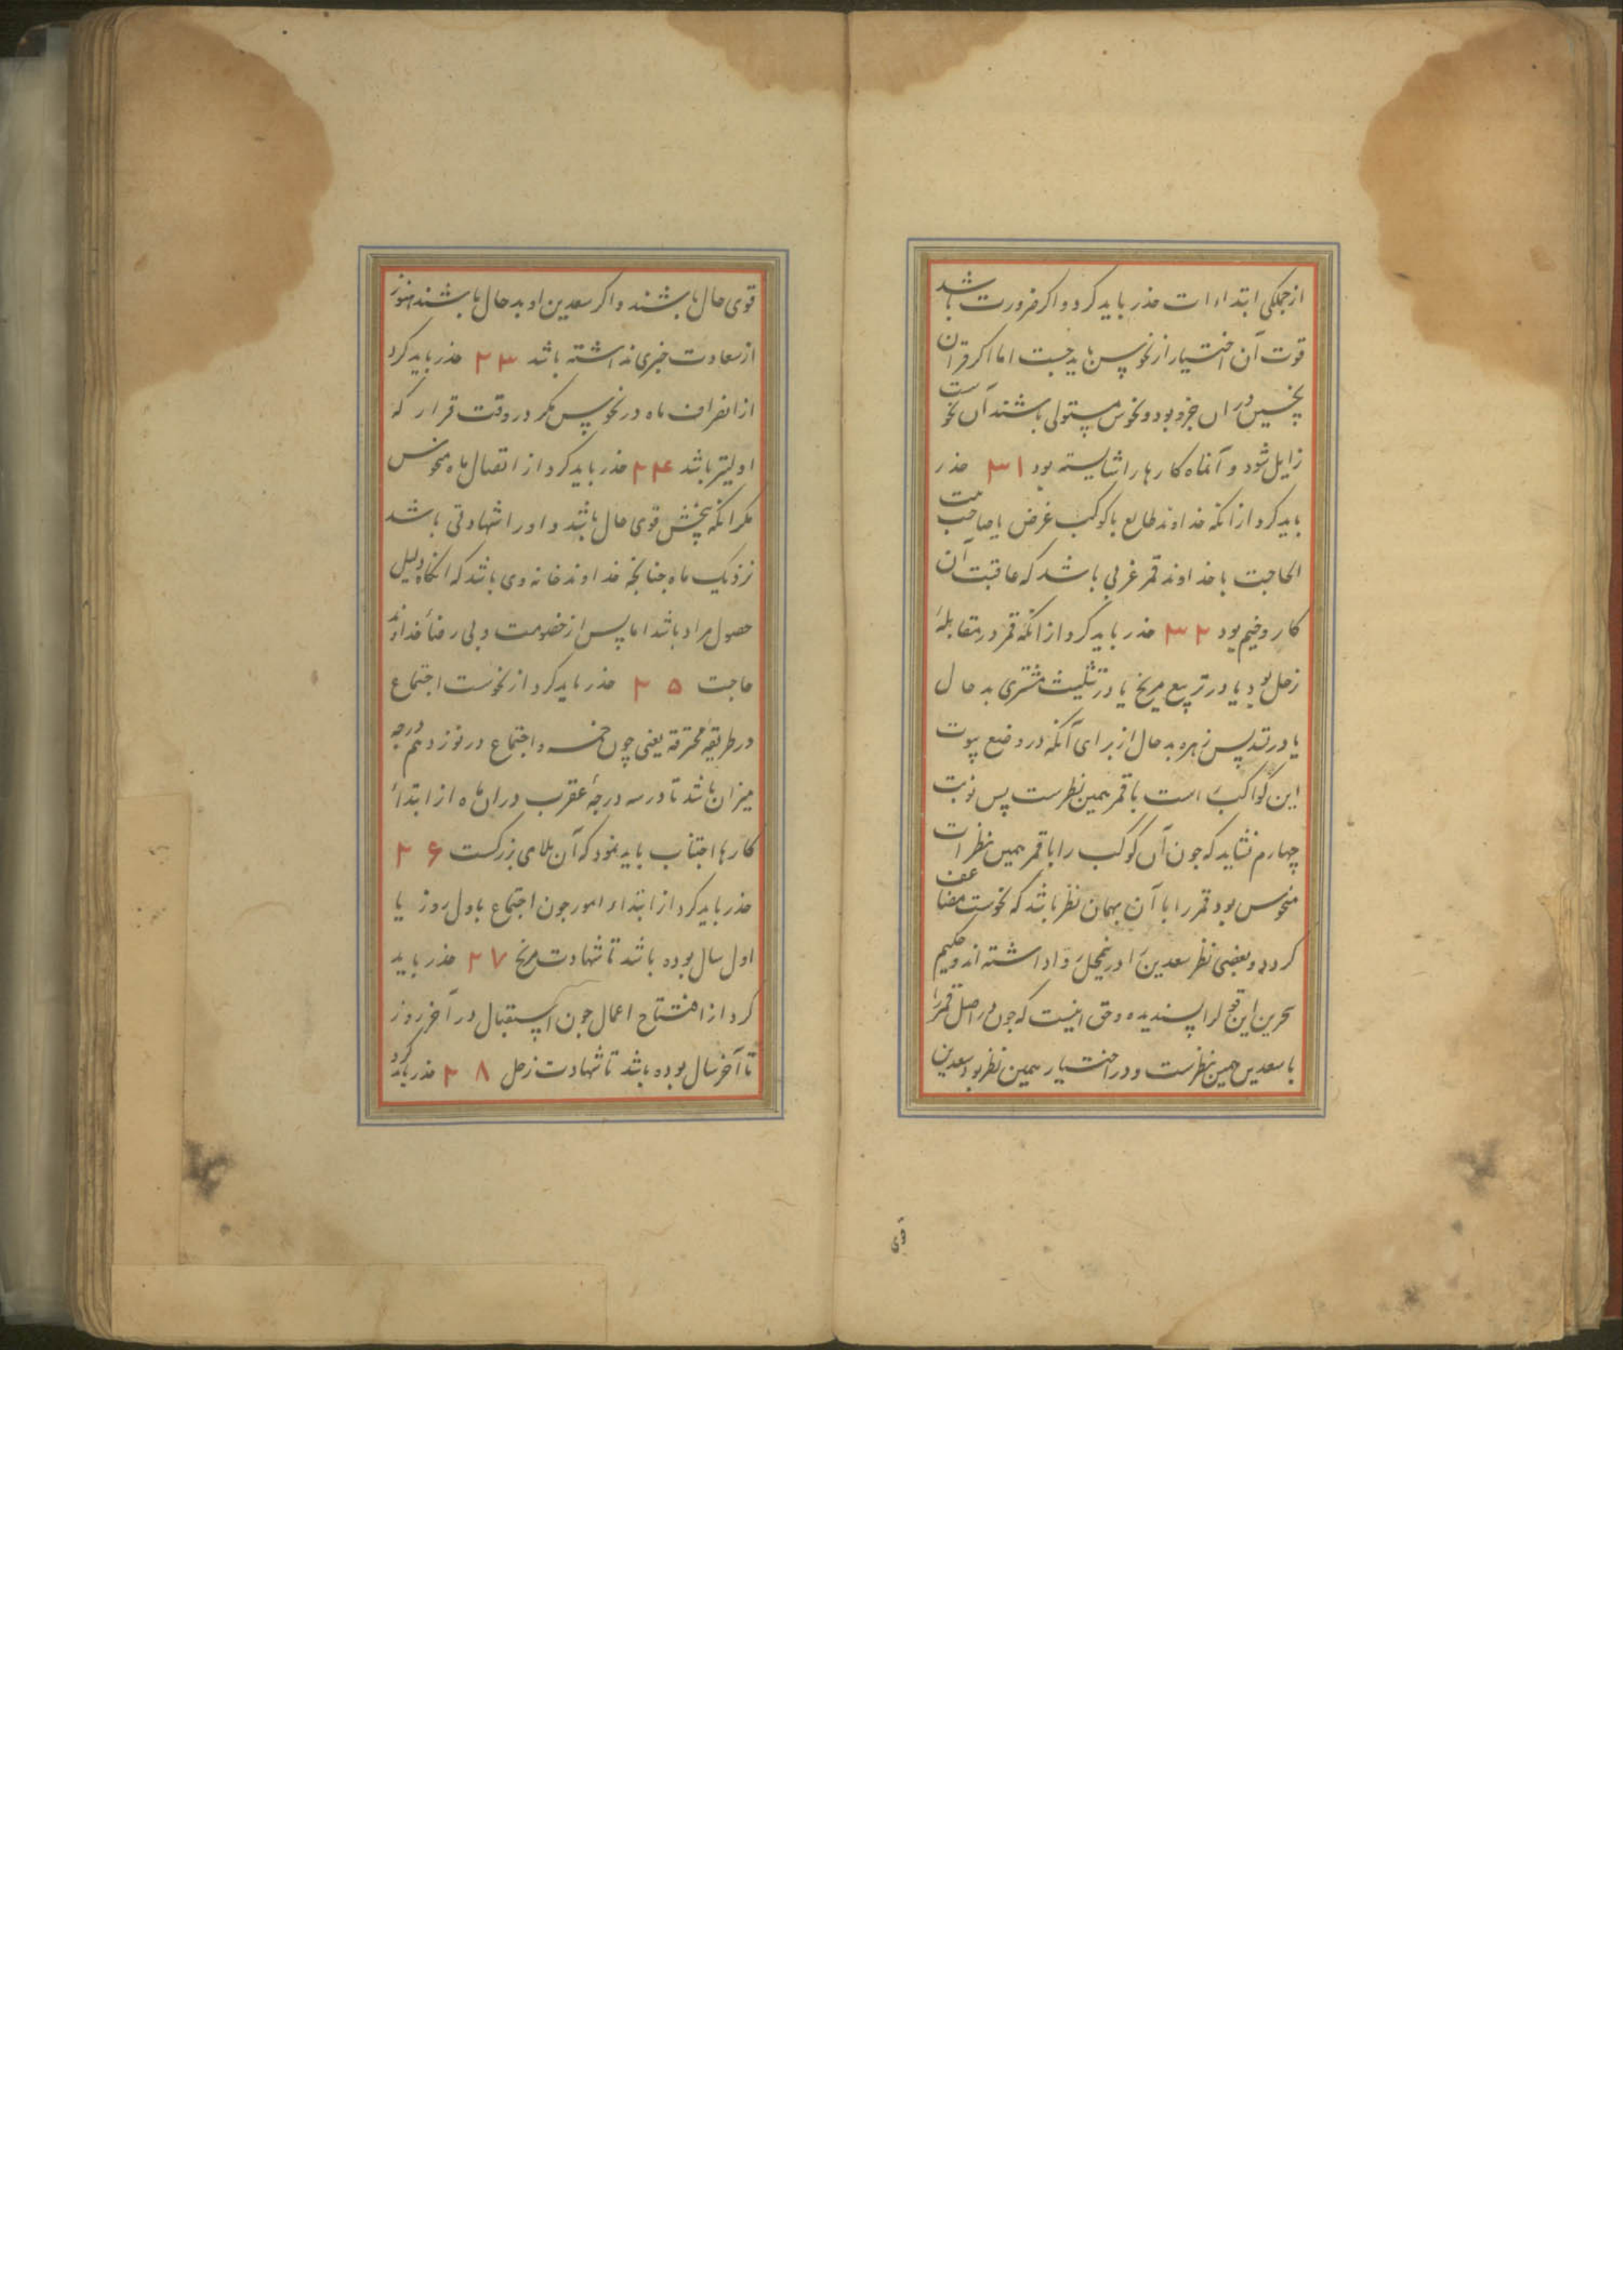 از جملگی ابتداءات حذر باید کرد و اکر ضرورت باشد
قوت آن اختیار از نحوس باید جست اما اکر قران
نحسین در ان جزو بود و نحوس مستولی باشند آن نحوست
زایل شود و آنماه کارها را شایسته بود ۳۱ حذر
باید کرد از انکه خداوند طالع با کوکب غرض یا صاحبت
الحاجت با خداوند قمر غربی باشد که عاقبت آن
کار وخیم بود ۳۲ حذر باید کرد از انکه قمر در مقابلهٔ
زحل بود یا در تربیع مریخ یا در تثلیث مشتری بد حال
یا در تسدیس زهره بد حال از برای آنکه در وضع بیوت
این کواکب است با قمر همین نظرست پس نوبت
چهارم نشاید که جون آن کوکب را با قمر همین نظر است
منحوس بود قمر را با آن بهمان نظر باشد که نحوست مضاعف
کردد و بعضی نظر سعدین را درینمحل روا داشته اند و حکیم
بحرین این قول را پسندیده و حق اینست که جون در اصل قمر را
با سعدین همین نظرست و در اختیار همین نظر بود سعدین
قوی
قوی حال باشند و اکر سعدین او بد حال باشند هنوز
از سعادت خبری نداشته باشد ۲۳ حذر باید کرد
از انصراف ماه در نحوس مکر در وقت قرار که
اولیتر باشد ۲۴ حذر باید کرد از اتصال ماه منحوس
مکر انکه نحسش قوی حال باشد و او را شهادتی باشد
نزدیک ماه جنانجه خداوند خانه وی باشد که انکاه دلیل
حصول مراد باشد اما پس از خصومت و بی رضاء خداوند
حاجت ۲۵ حذر باید کرد از نحوست اجتماع
در طریقهٔ محترقه یعنی چون جزء اجتماع در نوزدهم درجه
میزان باشد تا در سه درجهٔ عقرب در ان ماه از ابتداء
کارها اجتناب باید نمود که آن بلای بزرکست ۲۶
حذر باید کرد از ابتداء امور جون اجتماع باول روز یا
اول سال بوده باشد تا شهادت مریخ ۲۷ حذر باید
کرد از افتتاح اعمال جون استقبال در آخر روز
تا آخر سال بوده باشد تا شهادت زحل ۲۸ حذر باید کرد